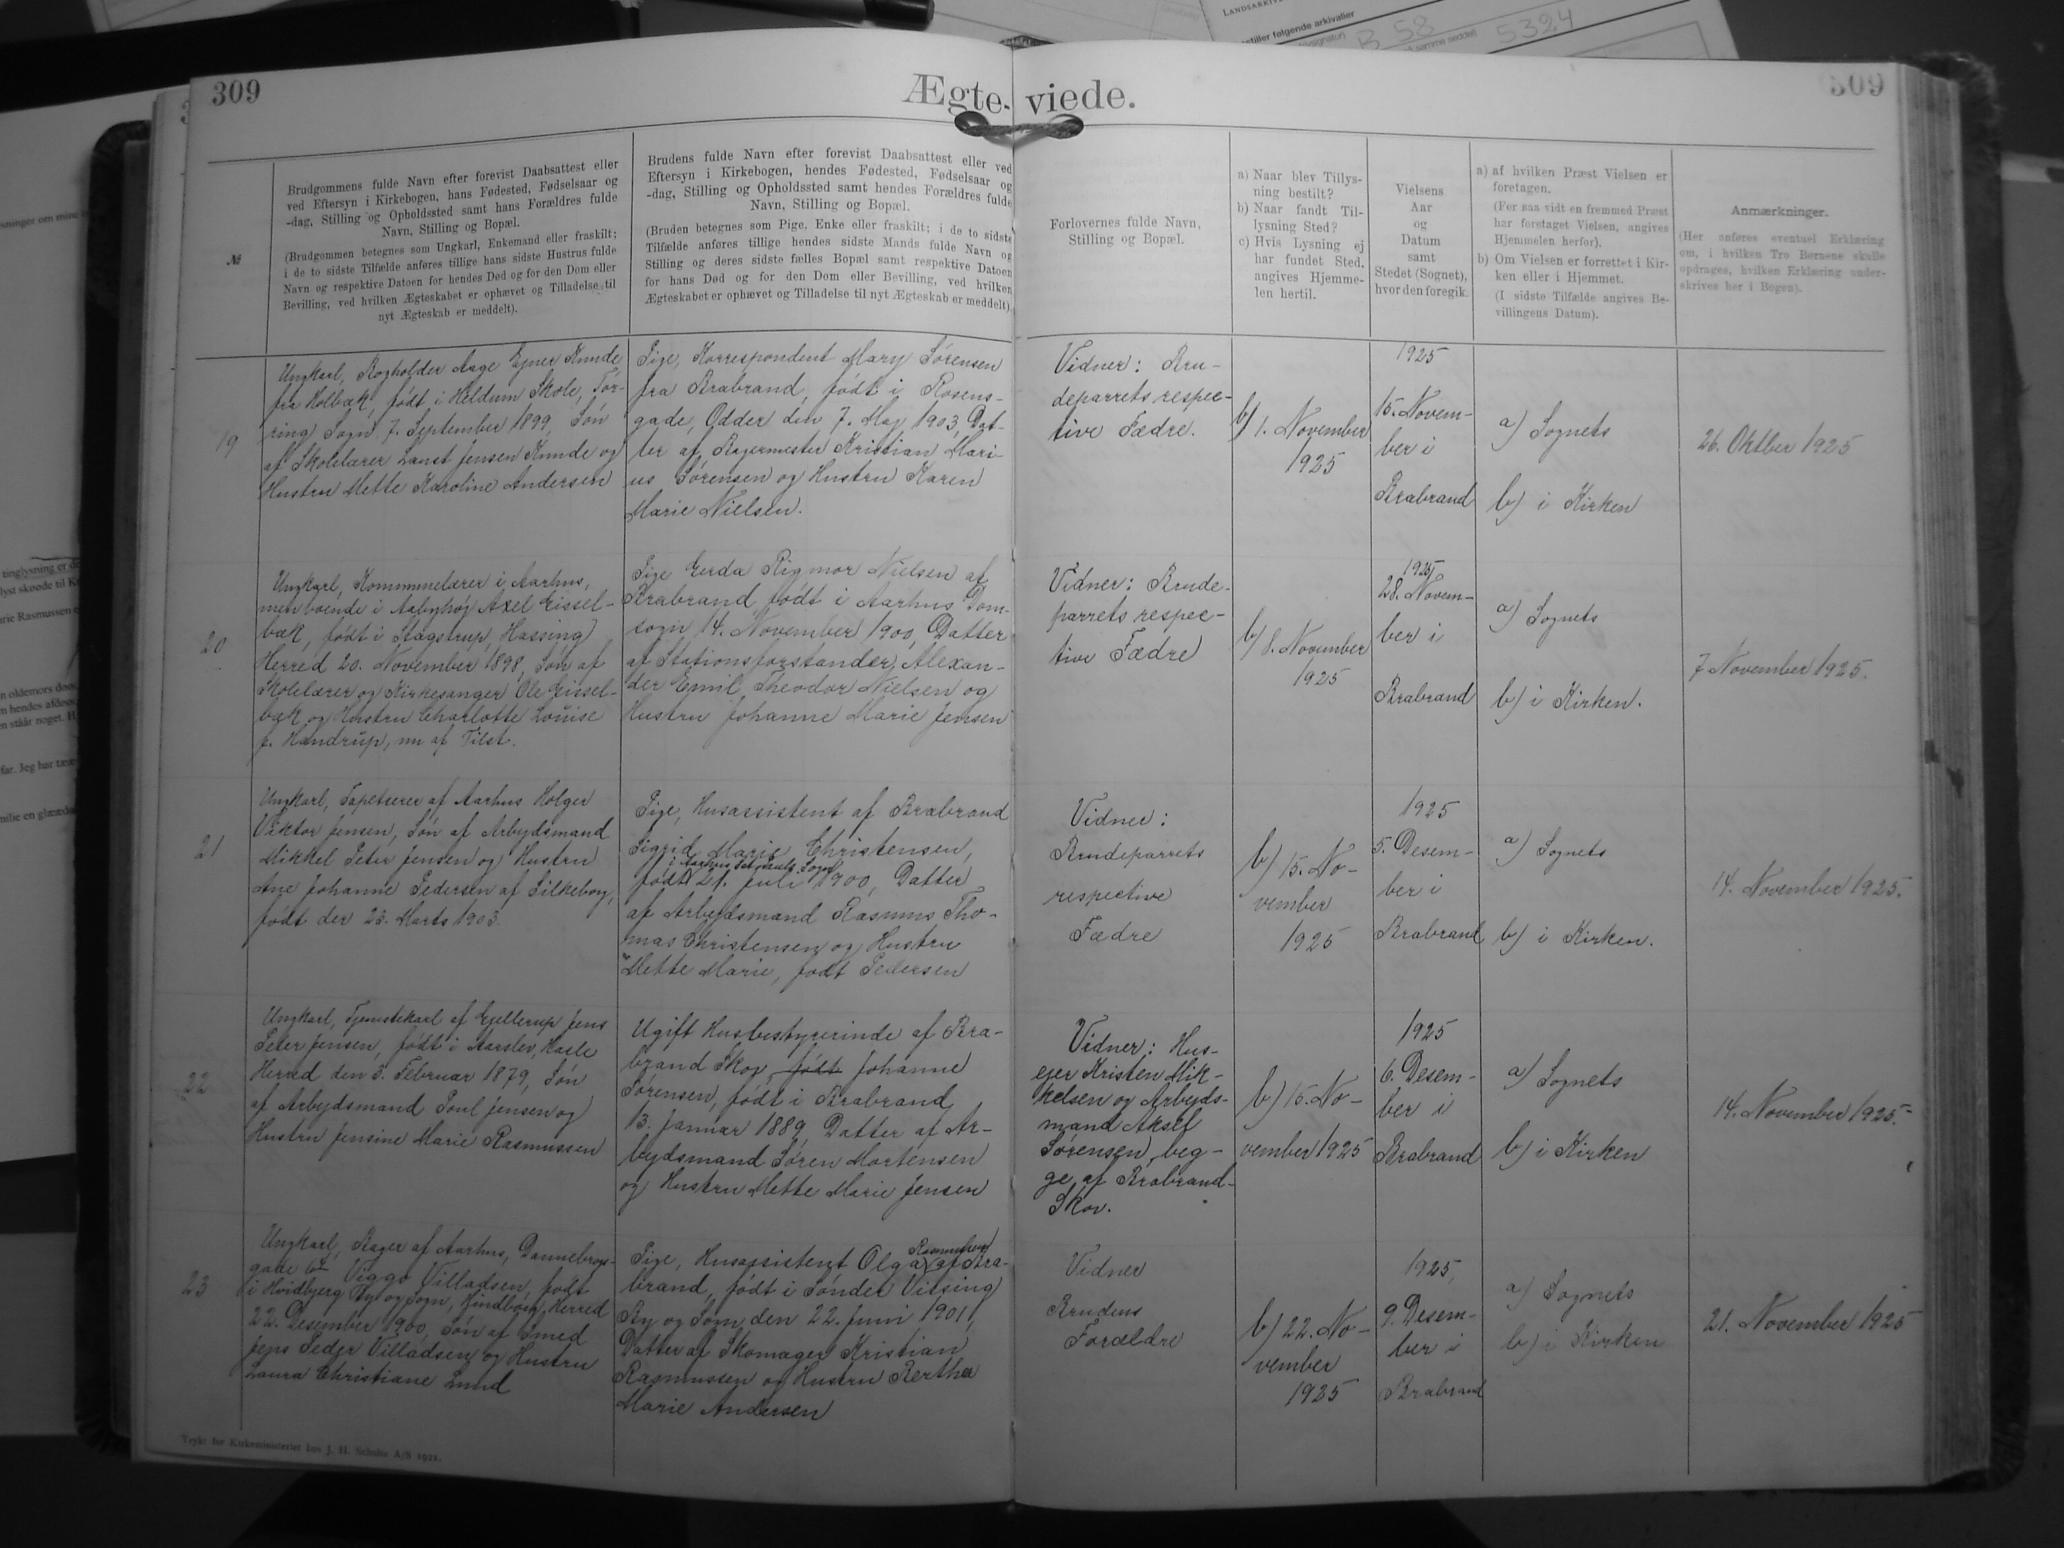 309
Ægte-viede.
309
№
Brudgommens fulde Navn efter forevist Daabsattest eller
ved Eftersyn i Kirkebogen, hans Fødested, Fødselsaar og
-dag, Stilling og Opholdssted samt hans Forældres fulde
Navn, Stilling og Bopæl.
(Brudgommen betegnes som Ungkarl, Enkemand eller fraskilt;
i de to sidste Tilfælde anføres tillige hans sidste Hustrus fulde
Navn og respektive Datoen for hendes Død og for den Dom eller
Bevilling, ved hvilken Ægteskabet er ophævet og Tilladelse til
nyt Ægteskab er meddelt).
Brudens fulde Navn efter forevist Daabsattest eller ved
Eftersyn i Kirkebogen, hendes Fødested, Fødselsaar og
-dag, Stilling og Opholdssted samt hendes Forældres fulde
Navn, Stilling og Bopæl.
(Bruden betegnes som Pige, Enke eller fraskilt; i de to sidste
Tilfælde anføres tillige hendes sidste Mands fulde Navn og
Stilling og deres sidste fælles Bopæl samt respektive Datoen
for hans Død og for den Dom eller Bevilling, ved hvilken
Ægteskabet er ophævet og Tilladelse til nyt Ægteskab er meddelt)
Forlovernes fulde Navn,
Stilling og Bopæl.
a) Naar blev Tillys-
ning bestilt?
b) Naar fandt Til-
lysning Sted?
c) Hvis Lysning ej
har fundet Sted,
angives Hjemme-
len hertil.
Vielsens
Aar
og
Datum
samt
Stedet (Sognet),
hvor den foregik.
a) af hvilken Præst Vielsen er
foretagen.
(For saa vidt en fremmed Præst
har foretaget Vielsen, angives
Hjemmelen herfor).
b) Om Vielsen er forrettet i Kir-
ken eller i Hjemmet.
(I sidste Tilfælde angives Be-
villingens Datum).
Anmærkninger.
(Her anføres eventuel Erklæring
om, i hvilken Tro Børnene skulle
opdrages, hvilken Erklæring under-
skrives her i Bogen).
19
Ungkarl, Bogholder Aage Ejner Kunde,
fra Holbæk, født i Heldum Skole, Tør-
ring Sogn, 7. September 1899, Søn
af Skolelærer Laust Jensen Kunde og
Hustru Mette Karoline Andersen
Pige, Korrespondent Mary Sørensen
fra Brabrand, født i Rosens-
gade, Odder den 7. Maj 1903, Dat-
ter af Bagermester Kristian Mari-
us Sørensen og Hustru Karen
Marie Nielsen.
Vidner: Bru-
deparrets respec-
tive Fædre.
b) 1. November
1925
1925
15. Novem-
ber i
Brabrand
a) Sognets
b) i Kirken
26. Oktber 1925
20
Ungkarl, Kommunelærer i Aarhus,
men boende i Aabyhøj Axel Eissel-
bæk, født i Stagstrup, Hassing
Herred 20. November 1898, Søn af
Skolelærer og Kirkesanger Ole Eissel-
bæk og Hustru Charlotte Louise
f. Handrup, nu af Tilst.
Pige Gerda Rigmor Nielsen af
Brabrand født i Aarhus Dom-
sogn 14. November 1900, Datter
af Stationsforstander Alexan-
der Emil Theodor Nielsen og
Hustru Johanne Marie Jensen
Vidner: Brude-
parrets respec-
tive Fædre
b) 8. November
1925
1925
28. Novem-
ber i
Brabrand
a) Sognets
b) i Kirken.
7 November 1925.
21
Ungkarl, Tapetserer af Aarhus Holger
Viktor Jensen, Søn af Arbejdsmand
Mikkel Peter Jensen og Hustru
Ane Johanne Pedersen af Silkeborg,
født der 23. Marts 1903.
Pige, Husassistent af Brabrand
Sigrid Marie Christensen,
i Aarhus Sct. Pauls Sogn
født 21. Juli 1900, Datter
af Arbejdsmand Rasmus Tho-
mas Christensen og Hustru
Mette Marie, født Pedersen
Vidner:
Brudeparrets
respective
Fædre
b) 15. No-
vember
1925
1925
5. Desem-
ber i
Brabrand
a) Sognets
b) i Kirken.
14. November 1925.
22
Ungkarl, Tjenestekarl af Gjellerup Jens
Peter Jensen, født i Aarslev, Hasle
Herred den 3. Februar 1879, Søn
af Arbejdsmand Poul Jensen og
Hustru Jensine Marie Rasmussen
Ugift Husbestyrerinde af Bra-
brand Skov, født Johanne
Sørensen, født i Brabrand
13. Januar 1889, Datter af Ar-
bejdsmand Søren Mortensen
og Hustru Mette Marie Jensen
Vidner: Hus-
ejer Kristen Mik-
kelsen og Arbejds-
mand Aksel
Sørensen, beg-
ge af Brabrand-
Skov.
b) 15. No-
vember 1925
1925
6. Desem-
ber i
Brabrand
a) Sognets
b) i Kirken
14. November 1925.
23
Ungkarl, Bager af Aarhus, Dannebrogs-
gade Viggo Villadsen, født
i Hvidbjerg By og Sogn, Hindborg Herred
22. Desember 1900, Søn af Smed
Jens Peder Villadsen og Hustru
Laura Christiane Lund
Rasmussen
Pige, Husassistent Olga af Bra-
brand, født i Sønder Vissing
By og Sogn, den 22. Juni 1901,
Datter af Skomager Kristian
Rasmussen og Hustru Berthe
Marie Andersen
Vidner
Brudens
Forældre
b) 22. No-
vember
1925
1925,
9. Desem-
ber i
Brabrand
a) Sognets
b) i Kirken
21. November 1925
Trykt for Kirkeministeriet hos J. H. Schultz A/S 1921.
stiller følgende arkivalier
B 58
samme seddel)
5324